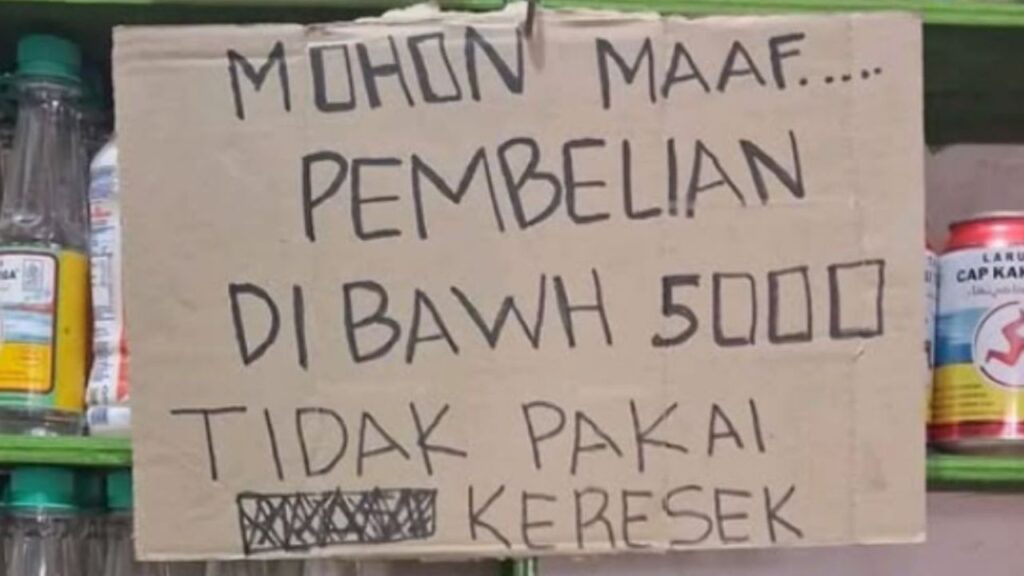 MOHON MAAF.....
PEMBELIAN
DIBAWH 5000
TIDAK PAKAI
KERESEK
CAP KAK